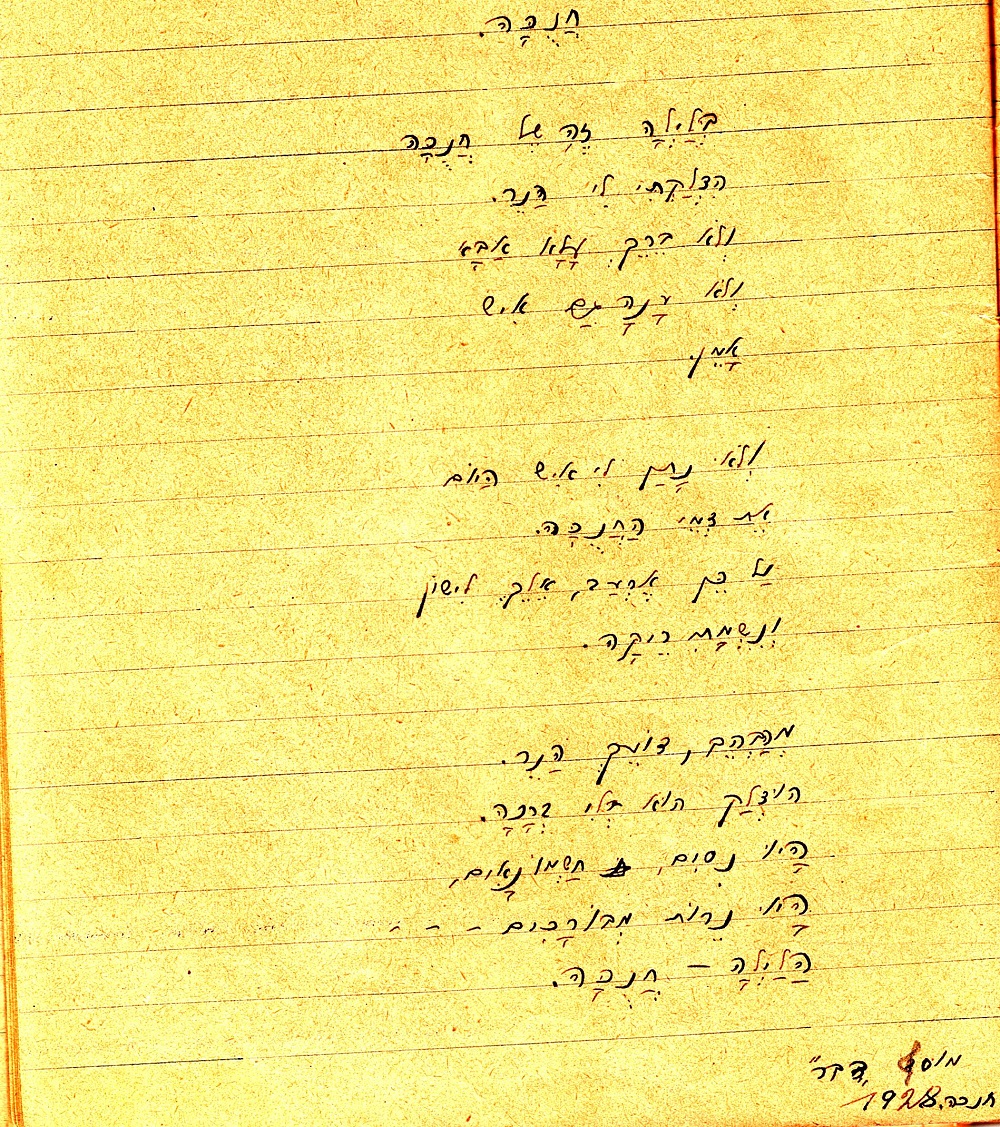 חֲנֻכָּה.
בְּלַיְלָה זֶה שֶׁל חֲנֻכָּה
הִדְלַקְתִּי לִי הַנֵּר.
וְלֹא בֵּרֵךְ אַבָּא
וְלֹא עָנָה גַּם אִישׁ
אָמֵן.
וְלֹא נָתַן לִי אִישׁ הַיּוֹם
אֶת דְּמֵי הַחֲנֻכָּה.
עַל כֵּן אֶרְעַב, אֵלֵךְ לִישׁוֹן
רֵיקָה.
מְהַבְהֵב, דּוֹעֵךְ הַנֵּר.
הוּדְלַק הוּא בְּלִי בְּרָכָה.
הָיוּ נִסִּים, חַשְׁמוֹנָאִים,
הָיוּ נֵרוֹת מְבוֹרָכִים - - -
הַלַּיְלָה – חֲנֻכָּה.
מוסף "דבר"
חנכה, 1928